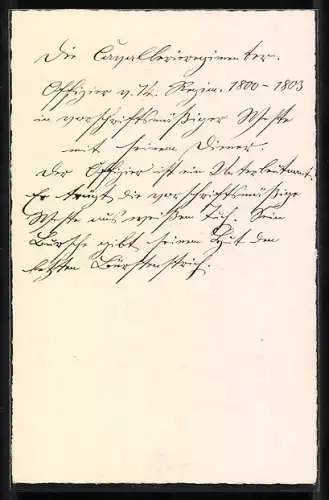 Die Cavallerieregimenter.
Offizier v. 12. Regim. 1800-1803
in vorschriftsmäßiger Weste
mit seinem Diener.
Der Offizier ist ein Unterleutnant.
Er trägt die vorschriftsmäßige
Weste aus weißem Tuch. Sein
Bursche gibt seinem Hut den
letzten Bürstenstrich.